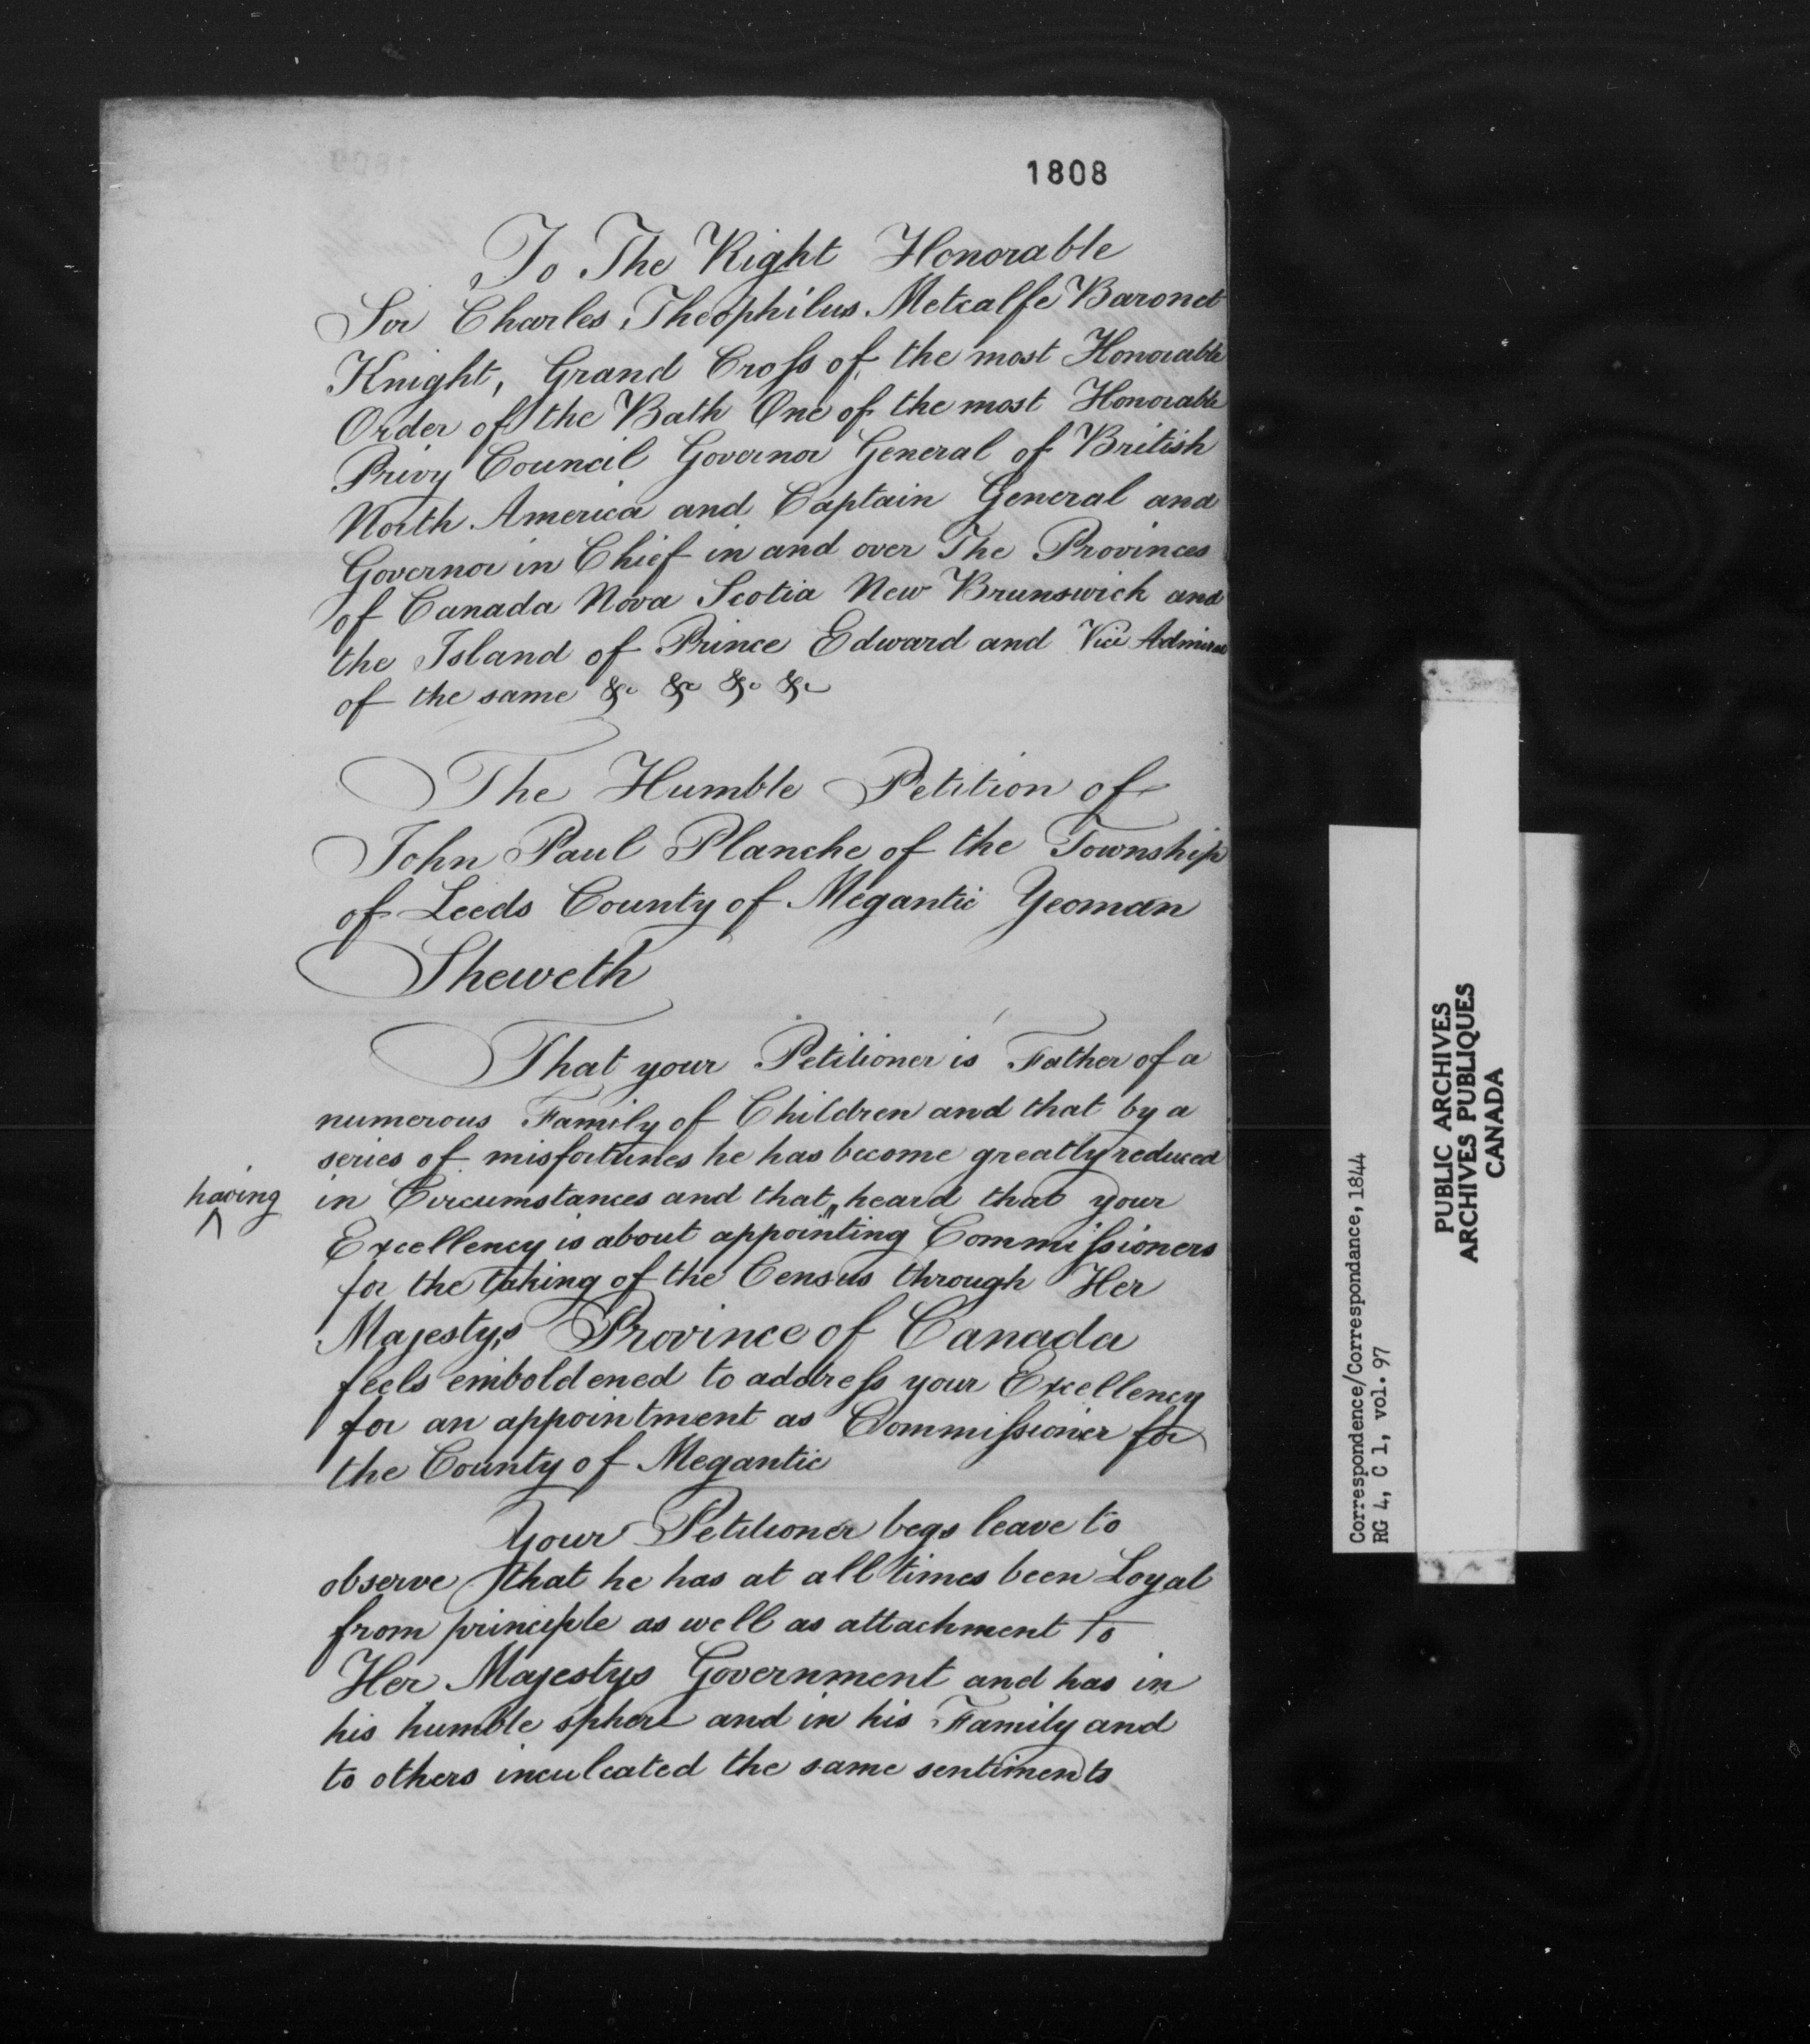 1808
To The Right Honorable
Sir Charles Theophilus Metcalfe Baronet
Knight, Grand Cross of the most Honorable
Order of the Bath One of the most Honorable
Privy Council Governor General of British
North America and Captain General and
Governor in Chief in and over The Provinces
of Canada Nova Scotia New Brunswick and
the Island of Prince Edward and Vice Admiral
of the same &c &c &c &c
The Humble Petition of
John Paul Planche of the Township
of Leeds County of Megantic Yeoman
Sheweth
That your Petitioner is Father of a
numerous Family of Children and that by a
series of misfortunes he has become greatly reduced
having
in Circumstances and that heard that your
Excellency is about appointing Commissioners
for the taking of the Census through Her
Majesty's Province of Canada
feels emboldened to address your Excellency
for an appointment as Commissioner for
the County of Megantic
Your Petitioner begs leave to
observe that he has at all times been Loyal
from principle as well as attachment to
Her Majestys Government and has in
his humble sphere and in his Family and
to others inculcated the same sentiments
Correspondence/Correspondance, 1844
RG 4, C 1, vol. 97
PUBLIC ARCHIVES
ARCHIVES PUBLIQUES
CANADA